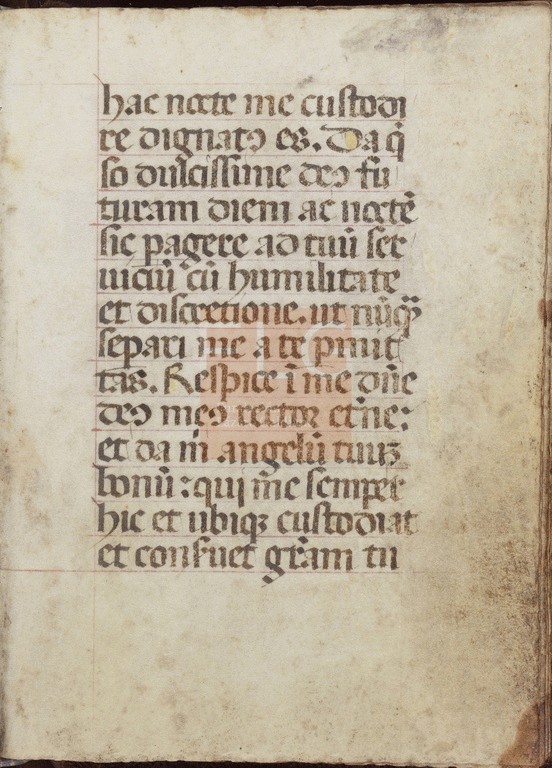 hac nocte me custodi
re dignatꝯ es. Da q̄
so dulcissime deꝯ fu
turam diem ac noctē
sic pagere ad tuū ser
uiciū cū humilitate
et discretione. ut nūꝙ̄
separi me a te pmit
tas. Respice ī me dn̄e
deꝯ meꝯ rector et̄ne:
et da m̄ angelū tuuꝫ
bonū: qui me semper
hic et ubiqꝫ custodiat
et conseruet gr̄am tu